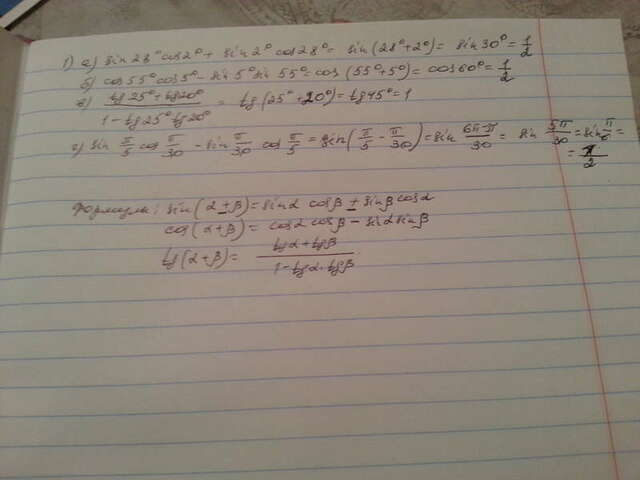 1) а) sin 28° cos 2° + sin 2° cos 28° = sin (28° + 2°) = sin 30° = 1/2
б) cos 55° cos 5° - sin 5° sin 55° = cos (55° + 5°) = cos 60° = 1/2
в) (tg 25° + tg 20°) / (1 - tg 25° tg 20°) = tg (25° + 20°) = tg 45° = 1
г) sin π/5 cos π/30 - sin π/30 cos π/5 = sin (π/5 - π/30) = sin (6π-π)/30 = sin 5π/30 = sin π/6 =
= 1/2
Формулы: sin (α ± β) = sin α cos β ± sin β cos α
cos (α + β) = cos α cos β - sin α sin β
tg (α + β) = (tg α + tg β) / (1 - tg α · tg β)